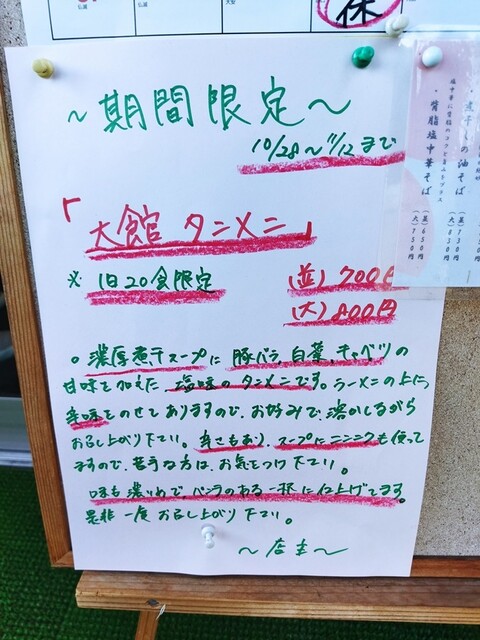 仏滅
仏滅
大安
休
～期間限定～
10/28～11/12まで
「大館タンメン」
※1日20食限定
(並)700円
(大)800円
○濃厚煮干スープに豚バラ、白菜、キャベツの
甘味を加えた、塩味のタンメンです。ラーメンの上に、
辛味をのせてありますので、お好みで溶かしながら
お召し上がり下さい。辛さもあり、スープにニンニクも使って
ますので、苦手な方は、お気をつけ下さい。
味も濃いめで、パンチのある一杯に仕上げてます。
是非一度お召し上がり下さい。
～店主～
の油そば
(並)730
(大)830
・背脂塩中華そば
塩中華に背脂のコクと旨みをプラス
(並)650円
(大)750円